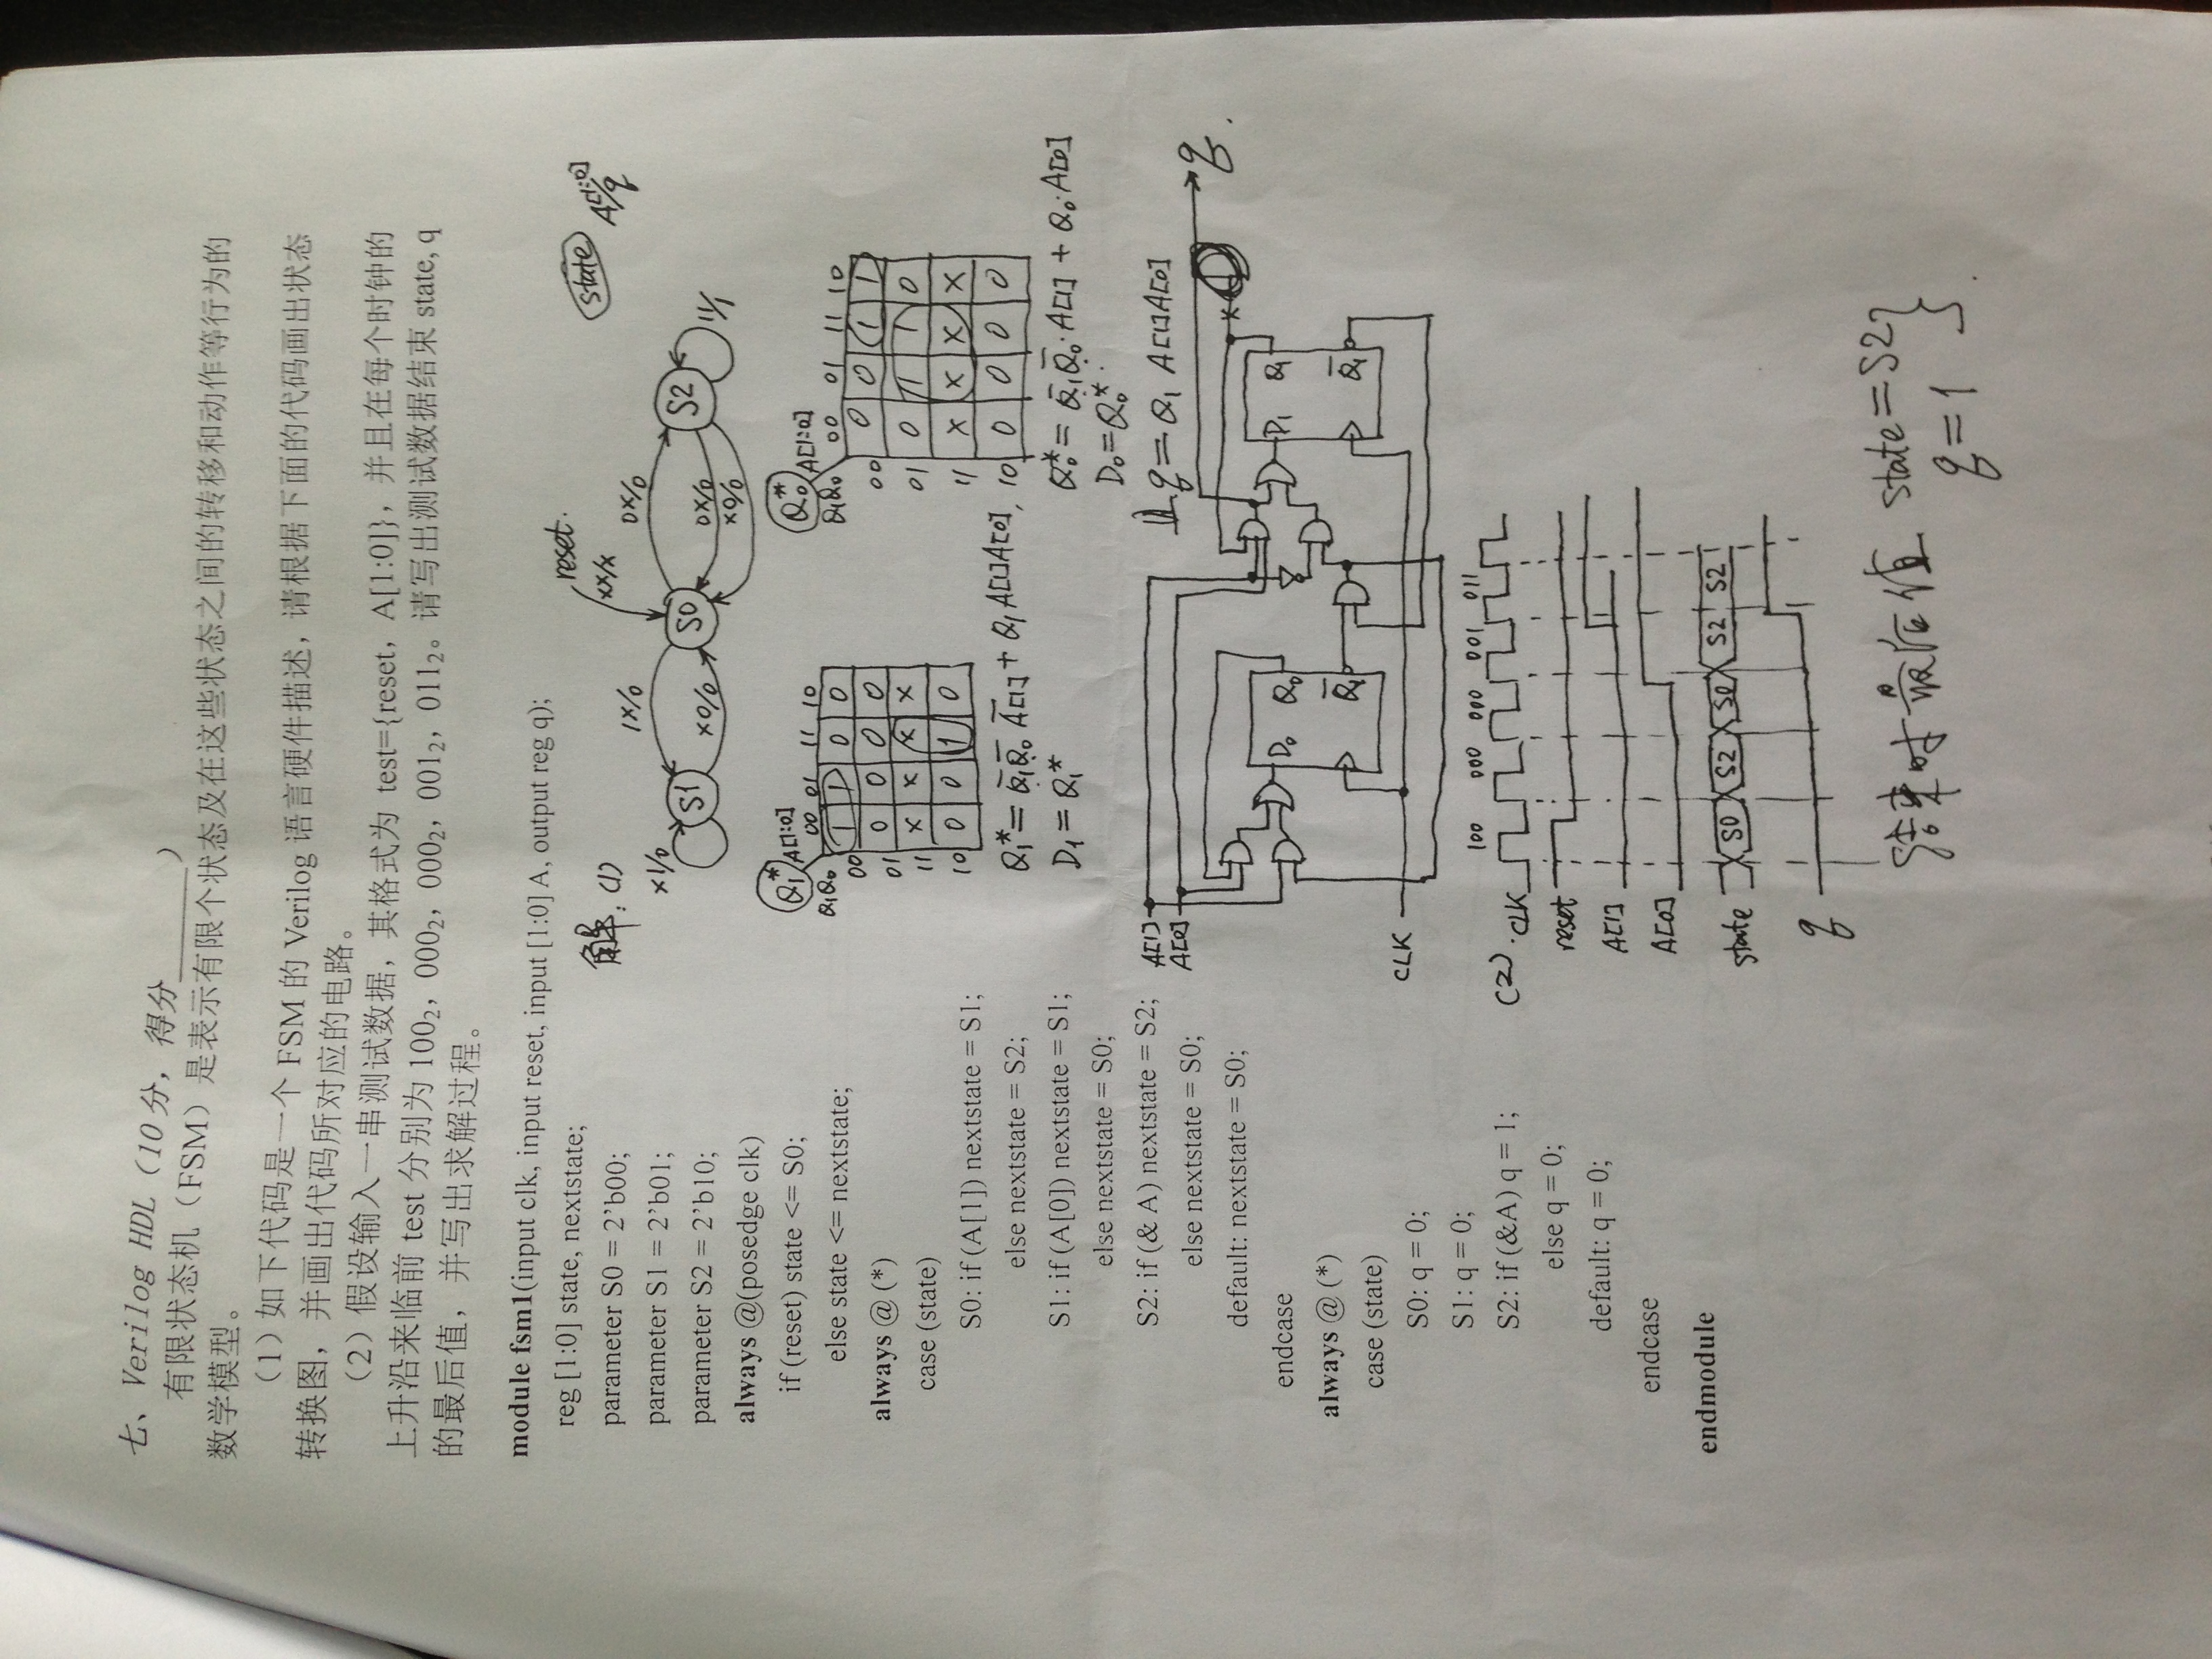 七、Verilog HDL（10分，得分______）
有限状态机（FSM）是表示有限个状态及在这些状态之间的转移和动作等行为的
数学模型。
（1）如下代码是一个 FSM 的 Verilog 语言硬件描述，请根据下面的代码画出状态
转换图，并画出代码所对应的电路。
（2）假设输入一串测试数据，其格式为 test={reset，A[1:0]}，并且在每个时钟的
上升沿来临前 test 分别为 100₂，000₂，000₂，001₂，011₂。请写出测试数据结束 state, q
的最后值，并写出求解过程。
module fsm1(input clk, input reset, input [1:0] A, output reg q);
reg [1:0] state, nextstate;
parameter S0 = 2’b00;
parameter S1 = 2’b01;
parameter S2 = 2’b10;
always @(posedge clk)
if (reset) state <= S0;
else state <= nextstate;
always @ (*)
case (state)
S0: if (A[1]) nextstate = S1;
else nextstate = S2;
S1: if (A[0]) nextstate = S1;
else nextstate = S0;
S2: if (& A) nextstate = S2;
else nextstate = S0;
default: nextstate = S0;
endcase
always @ (*)
case (state)
S0: q = 0;
S1: q = 0;
S2: if (&A) q = 1;
else q = 0;
default: q = 0;
endcase
endmodule
解：(1)
reset.
xx/x
state A[1:0]/q
1X/0
0X/0
x1/0
S1
S0
S2
x0/0
0x/0
x0/0
11/1
Q₁* A[1:0]
Q₁Q₀ 00 01 11 10
00 1 1 0 0
01 0 0 0 0
11 x x x x
10 0 0 1 0
Q₁* = Q̄₁Q̄₀ Ā[1] + Q₁A[1]A[0],
D₁ = Q₁*
Q₀* A[1:0]
Q₁Q₀ 00 01 11 10
00 0 0 1 1
01 0 1 1 0
11 x x x x
10 0 0 0 0
Q₀* = Q̄₁Q̄₀·A[1] + Q₀·A[0]
D₀ = Q₀*
q = Q₁ A[1]A[0]
A[1]
A[0]
q
D₀ Q₀
Q̄₁
D₁ Q₁
Q̄₁
CLK
(2).
100 000 000 001 011
CLK
reset
A[1]
A[0]
state S0 S2 S0 S2 S2
q
结束时最后值 state = S2
q = 1